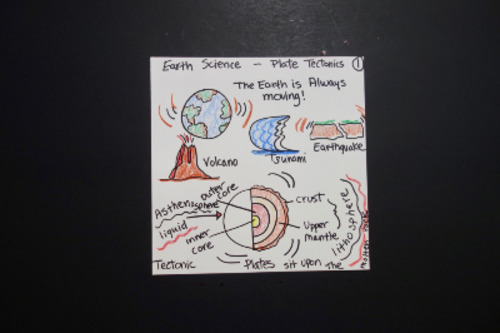 Earth Science - Plate Tectonics 1
The Earth is Always
moving!
Volcano
Tsunami
Earthquake
Asthenosphere
liquid
outer core
inner
core
crust
Upper
mantle
lithosphere
Tectonic Plates sit upon the
molten